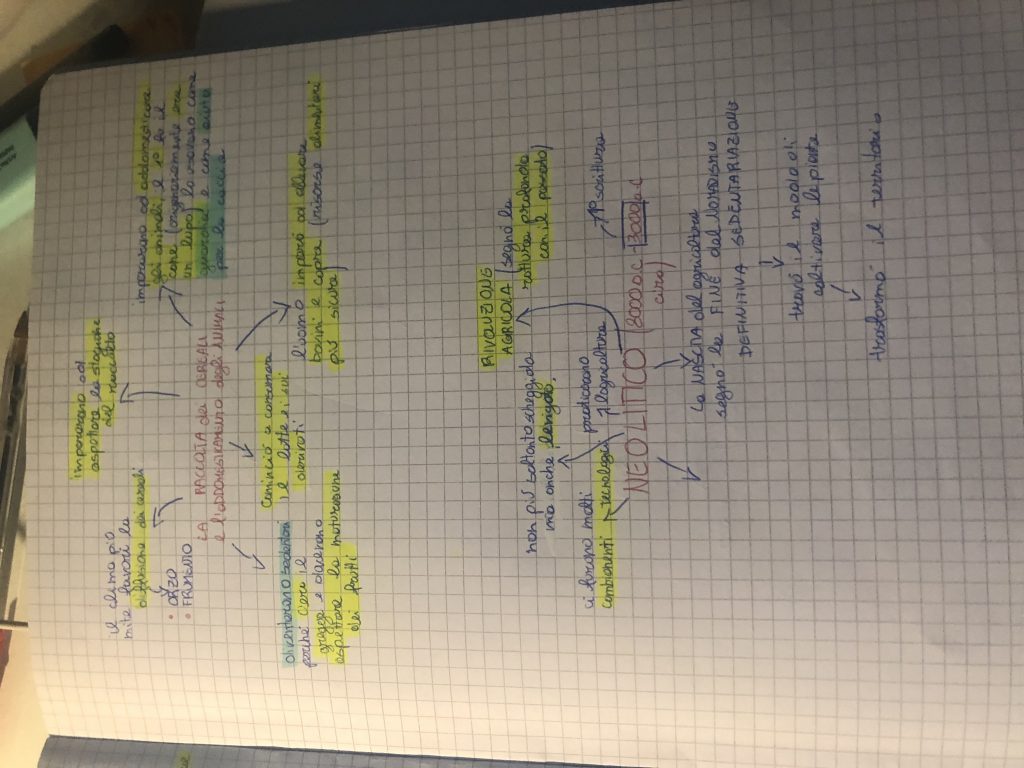 il clima più
mite favorì la
diffusione dei cereali
• ORZO
• FRUMENTO
imparano ad
aspettare la stagione
del raccolto
imparano ad addomesticare
gli animali e 1° fu il
cane (originariamente era
un lupo) lo usarono come
guardia e come aiuto
per la caccia
LA RACCOLTA dei CEREALI
e l'addomesticamento degli ANIMALI
diventarono sedentari
perché c'era il
gregge e dovevano
aspettare la maturazione
dei frutti
Cominciò a consumare
il latte e i suoi
derivati
l'uomo imparò ad allevare
bovini e capra (risorse alimentari
più sicure)
RIVOLUZIONE
AGRICOLA (segnò la
rottura profonda
con il passato)
non più soltanto scheggiata
ma anche levigata
ci furono molti
cambiamenti tecnologici
praticavano
l'agricoltura
NEOLITICO (8000 a.C. - 3000 a.C
circa)
La NASCITA dell'agricoltura
segnò la FINE del NOMADISMO
SEDENTARIZZAZIONE
DEFINITIVA
trovò il modo di
coltivare le piante
trasformò il territorio